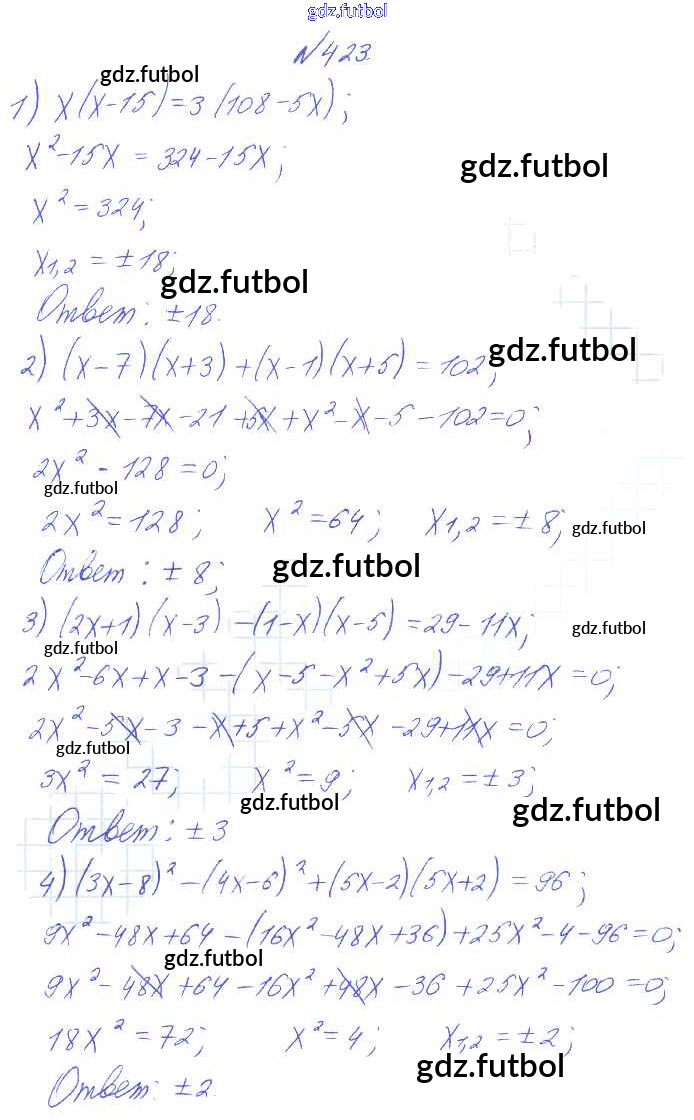 gdz.futbol
№423.
gdz.futbol
1) x(x-15)=3(108-5x);
x²-15x = 324-15x;
gdz.futbol
x² = 324;
x₁,₂ = ±18;
gdz.futbol
Ответ: ±18.
2) (x-7)(x+3)+(x-1)(x+5) = 102;
gdz.futbol
x²+3x-7x-21+5x+x²-x-5-102=0;
2x² - 128 = 0;
gdz.futbol
2x² = 128; x² = 64; x₁,₂ = ±8;
gdz.futbol
Ответ: ±8;
gdz.futbol
3) (2x+1)(x-3) -(1-x)(x-5) = 29-11x;
gdz.futbol
gdz.futbol
2x²-6x+x-3-(x-5-x²+5x)-29+11x = 0;
2x²-5x-3-x+5+x²-5x-29+11x = 0;
gdz.futbol
3x² = 27; x² = 9; x₁,₂ = ±3;
gdz.futbol
gdz.futbol
Ответ: ±3
4) (3x-8)² -(4x-6)² +(5x-2)(5x+2) = 96;
9x²-48x+64-(16x²-48x+36)+25x²-4-96=0;
gdz.futbol
9x²-48x+64-16x²+48x-36+25x²-100=0;
18x² = 72; x² = 4; x₁,₂ = ±2;
gdz.futbol
Ответ: ±2.